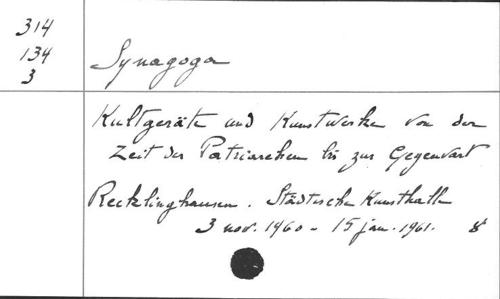 314
134
3
Synagoga
Kultgeräte und Kunstwerke von der
Zeit der Patriarchen bis zur Gegenwart
Recklinghausen. Städtische Kunsthalle
3 nov. 1960 - 15 jan. 1961.